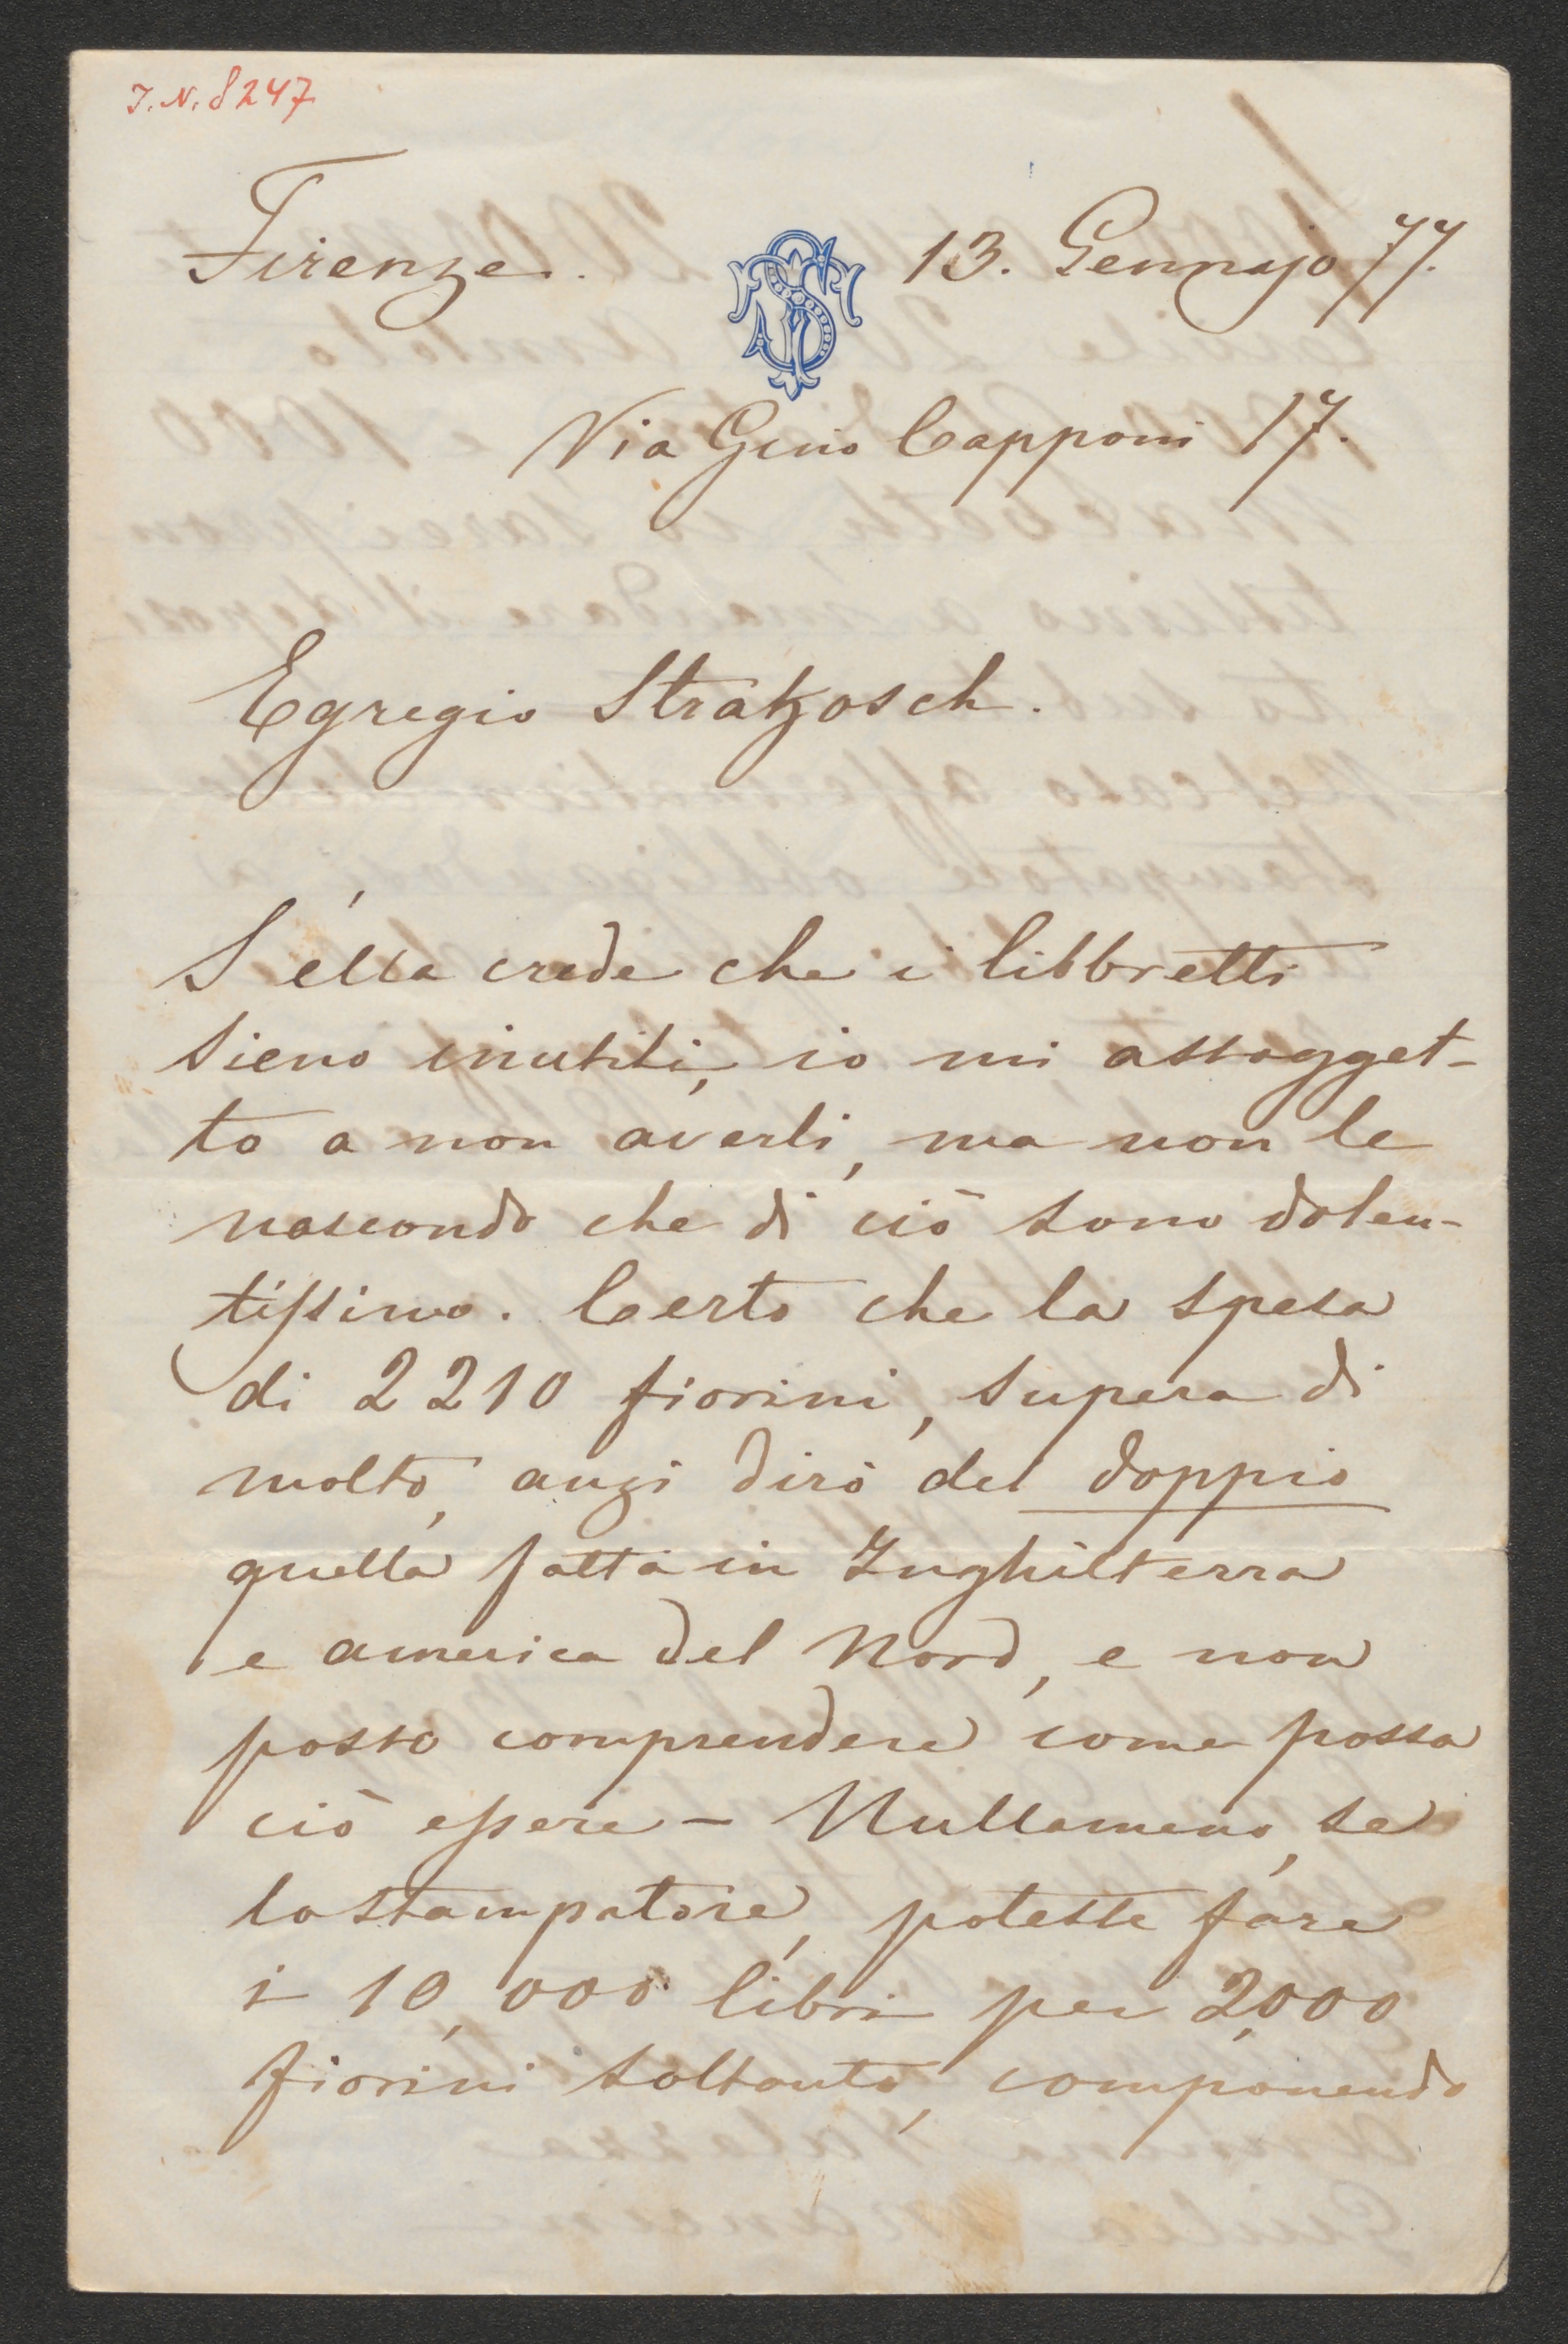 J.N. 8247
Firenze. 13. Gennajo 77.
TS
Via Gino Capponi 17.
Egregio Strakosch.
S'ella crede che i libbretti
sieno inutili, io mi assogget-
to a non averli, ma non le
nascondo che di ciò sono dolen-
tissimo. Certo che la spesa
di 2210 fiorini, supera di
molto, anzi dirò del doppio
quella fatta in Inghilterra
e america del Nord, e non
posso comprendere come possa
ciò essere - Nullameno, se
lo stampatore, potesse fare
i 10,000 libri per 2,000
fiorini soltanto, componendo